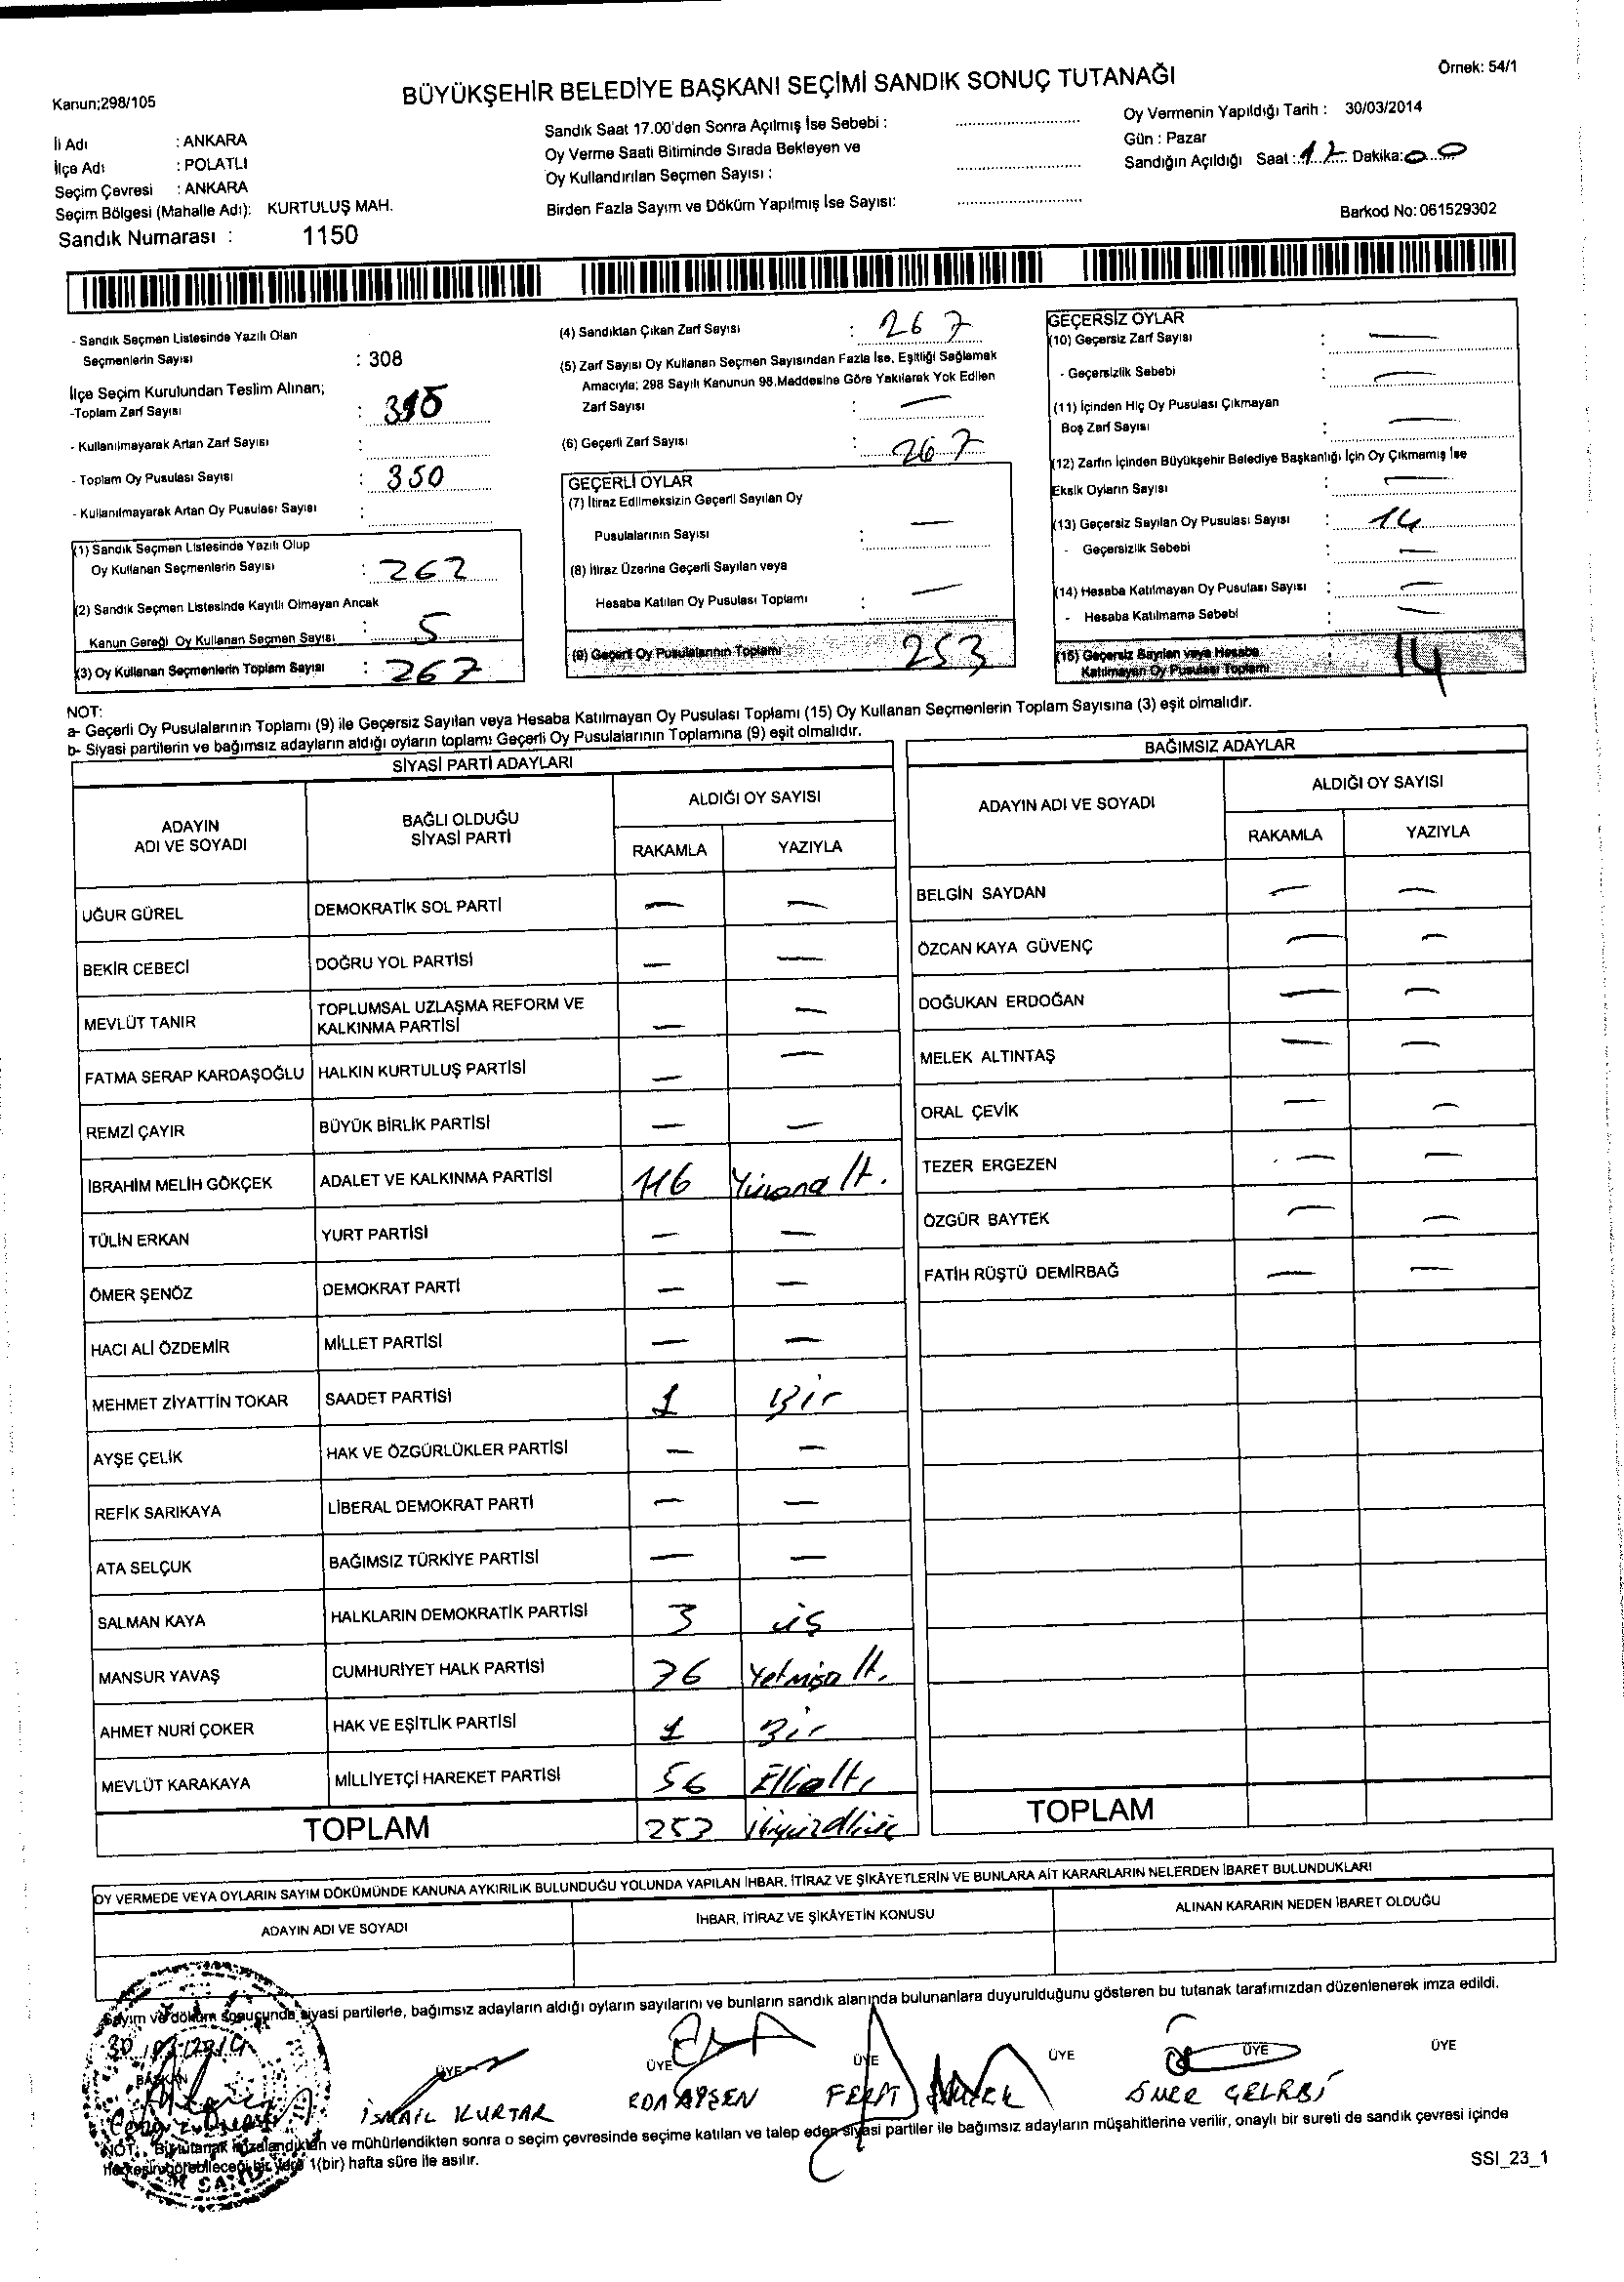 Örnek: 54/1
Kanun;298/105
BÜYÜKŞEHİR BELEDİYE BAŞKANI SEÇİMİ SANDIK SONUÇ TUTANAĞI
İli Adı : ANKARA
İlçe Adı : POLATLI
Seçim Çevresi : ANKARA
Seçim Bölgesi (Mahalle Adı): KURTULUŞ MAH.
Sandık Numarası : 1150
Sandık Saat 17.00'den Sonra Açılmış İse Sebebi :
Oy Verme Saati Bitiminde Sırada Bekleyen ve
Oy Kullandırılan Seçmen Sayısı :
Birden Fazla Sayım ve Döküm Yapılmış İse Sayısı:
Oy Vermenin Yapıldığı Tarih : 30/03/2014
Gün : Pazar
Sandığın Açıldığı Saat : 17 Dakika: 00
Barkod No: 061529302
- Sandık Seçmen Listesinde Yazılı Olan
Seçmenlerin Sayısı : 308
İlçe Seçim Kurulundan Teslim Alınan;
-Toplam Zarf Sayısı :
- Kullanılmayarak Artan Zarf Sayısı :
- Toplam Oy Pusulası Sayısı : 350
- Kullanılmayarak Artan Oy Pusulası Sayısı :
(1) Sandık Seçmen Listesinde Yazılı Olup
Oy Kullanan Seçmenlerin Sayısı : 262
(2) Sandık Seçmen Listesinde Kayıtlı Olmayan Ancak
Kanun Gereği Oy Kullanan Seçmen Sayısı : 5
(3) Oy Kullanan Seçmenlerin Toplam Sayısı : 267
(4) Sandıktan Çıkan Zarf Sayısı : 267
(5) Zarf Sayısı Oy Kullanan Seçmen Sayısından Fazla İse, Eşitliği Sağlamak
Amacıyla; 298 Sayılı Kanunun 98.Maddesine Göre Yakılarak Yok Edilen
Zarf Sayısı : —
(6) Geçerli Zarf Sayısı : 267
GEÇERLİ OYLAR
(7) İtiraz Edilmeksizin Geçerli Sayılan Oy
Pusulalarının Sayısı : —
(8) İtiraz Üzerine Geçerli Sayılan veya
Hesaba Katılan Oy Pusulası Toplamı : —
(9) Geçerli Oy Pusulalarının Toplamı 253
GEÇERSİZ OYLAR
(10) Geçersiz Zarf Sayısı : —
- Geçersizlik Sebebi : —
(11) İçinden Hiç Oy Pusulası Çıkmayan
Boş Zarf Sayısı : —
(12) Zarfın İçinden Büyükşehir Belediye Başkanlığı İçin Oy Çıkmamış İse
Eksik Oyların Sayısı : —
(13) Geçersiz Sayılan Oy Pusulası Sayısı : 14
- Geçersizlik Sebebi : —
(14) Hesaba Katılmayan Oy Pusulası Sayısı : —
- Hesaba Katılmama Sebebi : —
(15) Geçersiz Sayılan veya Hesaba
Katılmayan Oy Pusulası Toplamı : 14
NOT:
a- Geçerli Oy Pusulalarının Toplamı (9) ile Geçersiz Sayılan veya Hesaba Katılmayan Oy Pusulası Toplamı (15) Oy Kullanan Seçmenlerin Toplam Sayısına (3) eşit olmalıdır.
b- Siyasi partilerin ve bağımsız adayların aldığı oyların toplamı Geçerli Oy Pusulalarının Toplamına (9) eşit olmalıdır.
SİYASİ PARTİ ADAYLARI
ADAYIN ADI VE SOYADI
BAĞLI OLDUĞU SİYASİ PARTİ
ALDIĞI OY SAYISI
RAKAMLA YAZIYLA
UĞUR GÜREL DEMOKRATİK SOL PARTİ — —
BEKİR CEBECİ DOĞRU YOL PARTİSİ — —
MEVLÜT TANIR TOPLUMSAL UZLAŞMA REFORM VE KALKINMA PARTİSİ — —
FATMA SERAP KARDAŞOĞLU HALKIN KURTULUŞ PARTİSİ — —
REMZİ ÇAYIR BÜYÜK BİRLİK PARTİSİ — —
İBRAHİM MELİH GÖKÇEK ADALET VE KALKINMA PARTİSİ 116
TÜLİN ERKAN YURT PARTİSİ — —
ÖMER ŞENÖZ DEMOKRAT PARTİ — —
HACI ALİ ÖZDEMİR MİLLET PARTİSİ — —
MEHMET ZİYATTİN TOKAR SAADET PARTİSİ 1 Bir
AYŞE ÇELİK HAK VE ÖZGÜRLÜKLER PARTİSİ — —
REFİK SARIKAYA LİBERAL DEMOKRAT PARTİ — —
ATA SELÇUK BAĞIMSIZ TÜRKİYE PARTİSİ — —
SALMAN KAYA HALKLARIN DEMOKRATİK PARTİSİ 3 üş
MANSUR YAVAŞ CUMHURİYET HALK PARTİSİ 76 Yetmişaltı
AHMET NURİ ÇOKER HAK VE EŞİTLİK PARTİSİ 1 Bir
MEVLÜT KARAKAYA MİLLİYETÇİ HAREKET PARTİSİ 56 Ellialtı
TOPLAM 253
BAĞIMSIZ ADAYLAR
ADAYIN ADI VE SOYADI
ALDIĞI OY SAYISI
RAKAMLA YAZIYLA
BELGİN SAYDAN — —
ÖZCAN KAYA GÜVENÇ — —
DOĞUKAN ERDOĞAN — —
MELEK ALTINTAŞ — —
ORAL ÇEVİK — —
TEZER ERGEZEN — —
ÖZGÜR BAYTEK — —
FATİH RÜŞTÜ DEMİRBAĞ — —
TOPLAM
OY VERMEDE VEYA OYLARIN SAYIM DÖKÜMÜNDE KANUNA AYKIRILIK BULUNDUĞU YOLUNDA YAPILAN İHBAR, İTİRAZ VE ŞİKÂYETLERİN VE BUNLARA AİT KARARLARIN NELERDEN İBARET BULUNDUKLARI
ADAYIN ADI VE SOYADI İHBAR, İTİRAZ VE ŞİKÂYETİN KONUSU ALINAN KARARIN NEDEN İBARET OLDUĞU
Sayım ve döküm sonucunda siyasi partilerle, bağımsız adayların aldığı oyların sayılarını ve bunların sandık alanında bulunanlara duyurulduğunu gösteren bu tutanak tarafımızdan düzenlenerek imza edildi.
BAŞKAN ÜYE ÜYE ÜYE ÜYE ÜYE ÜYE
İSMAİL KURTAR
NOT: Bu tutanak imzalandıktan ve mühürlendikten sonra o seçim çevresinde seçime katılan ve talep eden siyasi partiler ile bağımsız adayların müşahitlerine verilir, onaylı bir sureti de sandık çevresi içinde
herkesin görebileceği bir yere 1(bir) hafta süre ile asılır.
SSI_23_1